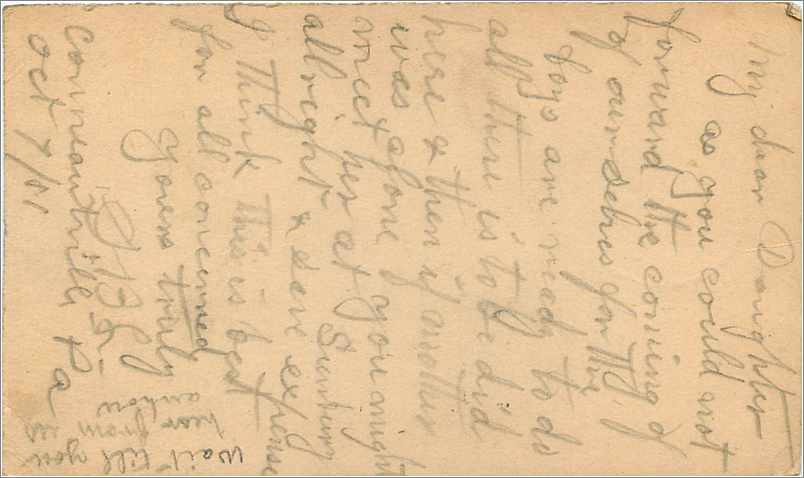 my dear Daughter
as you could not
forward the coming of
of ourselves for the
boys are ready to do
all there is to be did
here & then if another
was alone you might
meet her at Sunbury
allright & save expense
I think this is best
for all concerned
yours truly
Conneautville Pa
Oct 7/01
Wait till you
hear from us
anhow